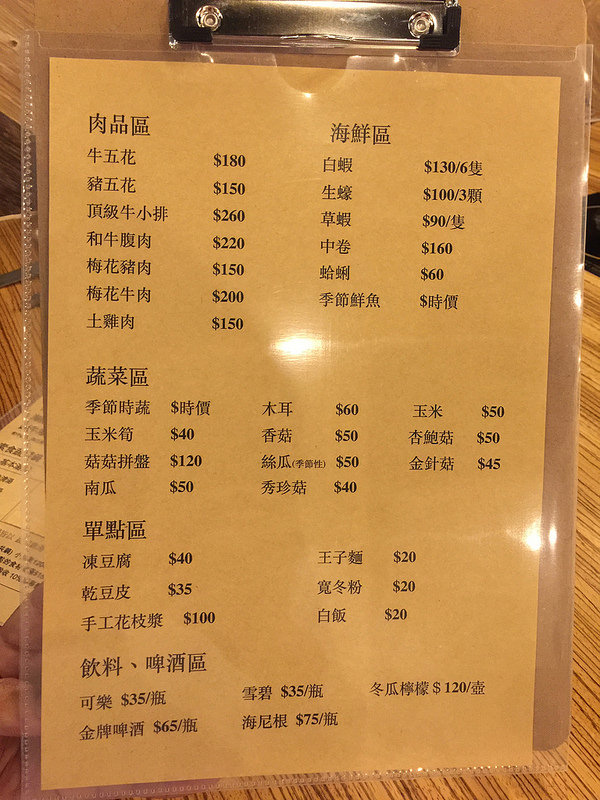 肉品區
牛五花 $180
豬五花 $150
頂級牛小排 $260
和牛腹肉 $220
梅花豬肉 $150
梅花牛肉 $200
土雞肉 $150
海鮮區
白蝦 $130/6隻
生蠔 $100/3顆
草蝦 $90/隻
中卷 $160
蛤蜊 $60
季節鮮魚 $時價
蔬菜區
季節時蔬 $時價 木耳 $60 玉米 $50
玉米筍 $40 香菇 $50 杏鮑菇 $50
菇菇拼盤 $120 絲瓜(季節性) $50 金針菇 $45
南瓜 $50 秀珍菇 $40
單點區
凍豆腐 $40 王子麵 $20
乾豆皮 $35 寬冬粉 $20
手工花枝漿 $100 白飯 $20
飲料、啤酒區
可樂 $35/瓶 雪碧 $35/瓶 冬瓜檸檬$120/壺
金牌啤酒 $65/瓶 海尼根 $75/瓶